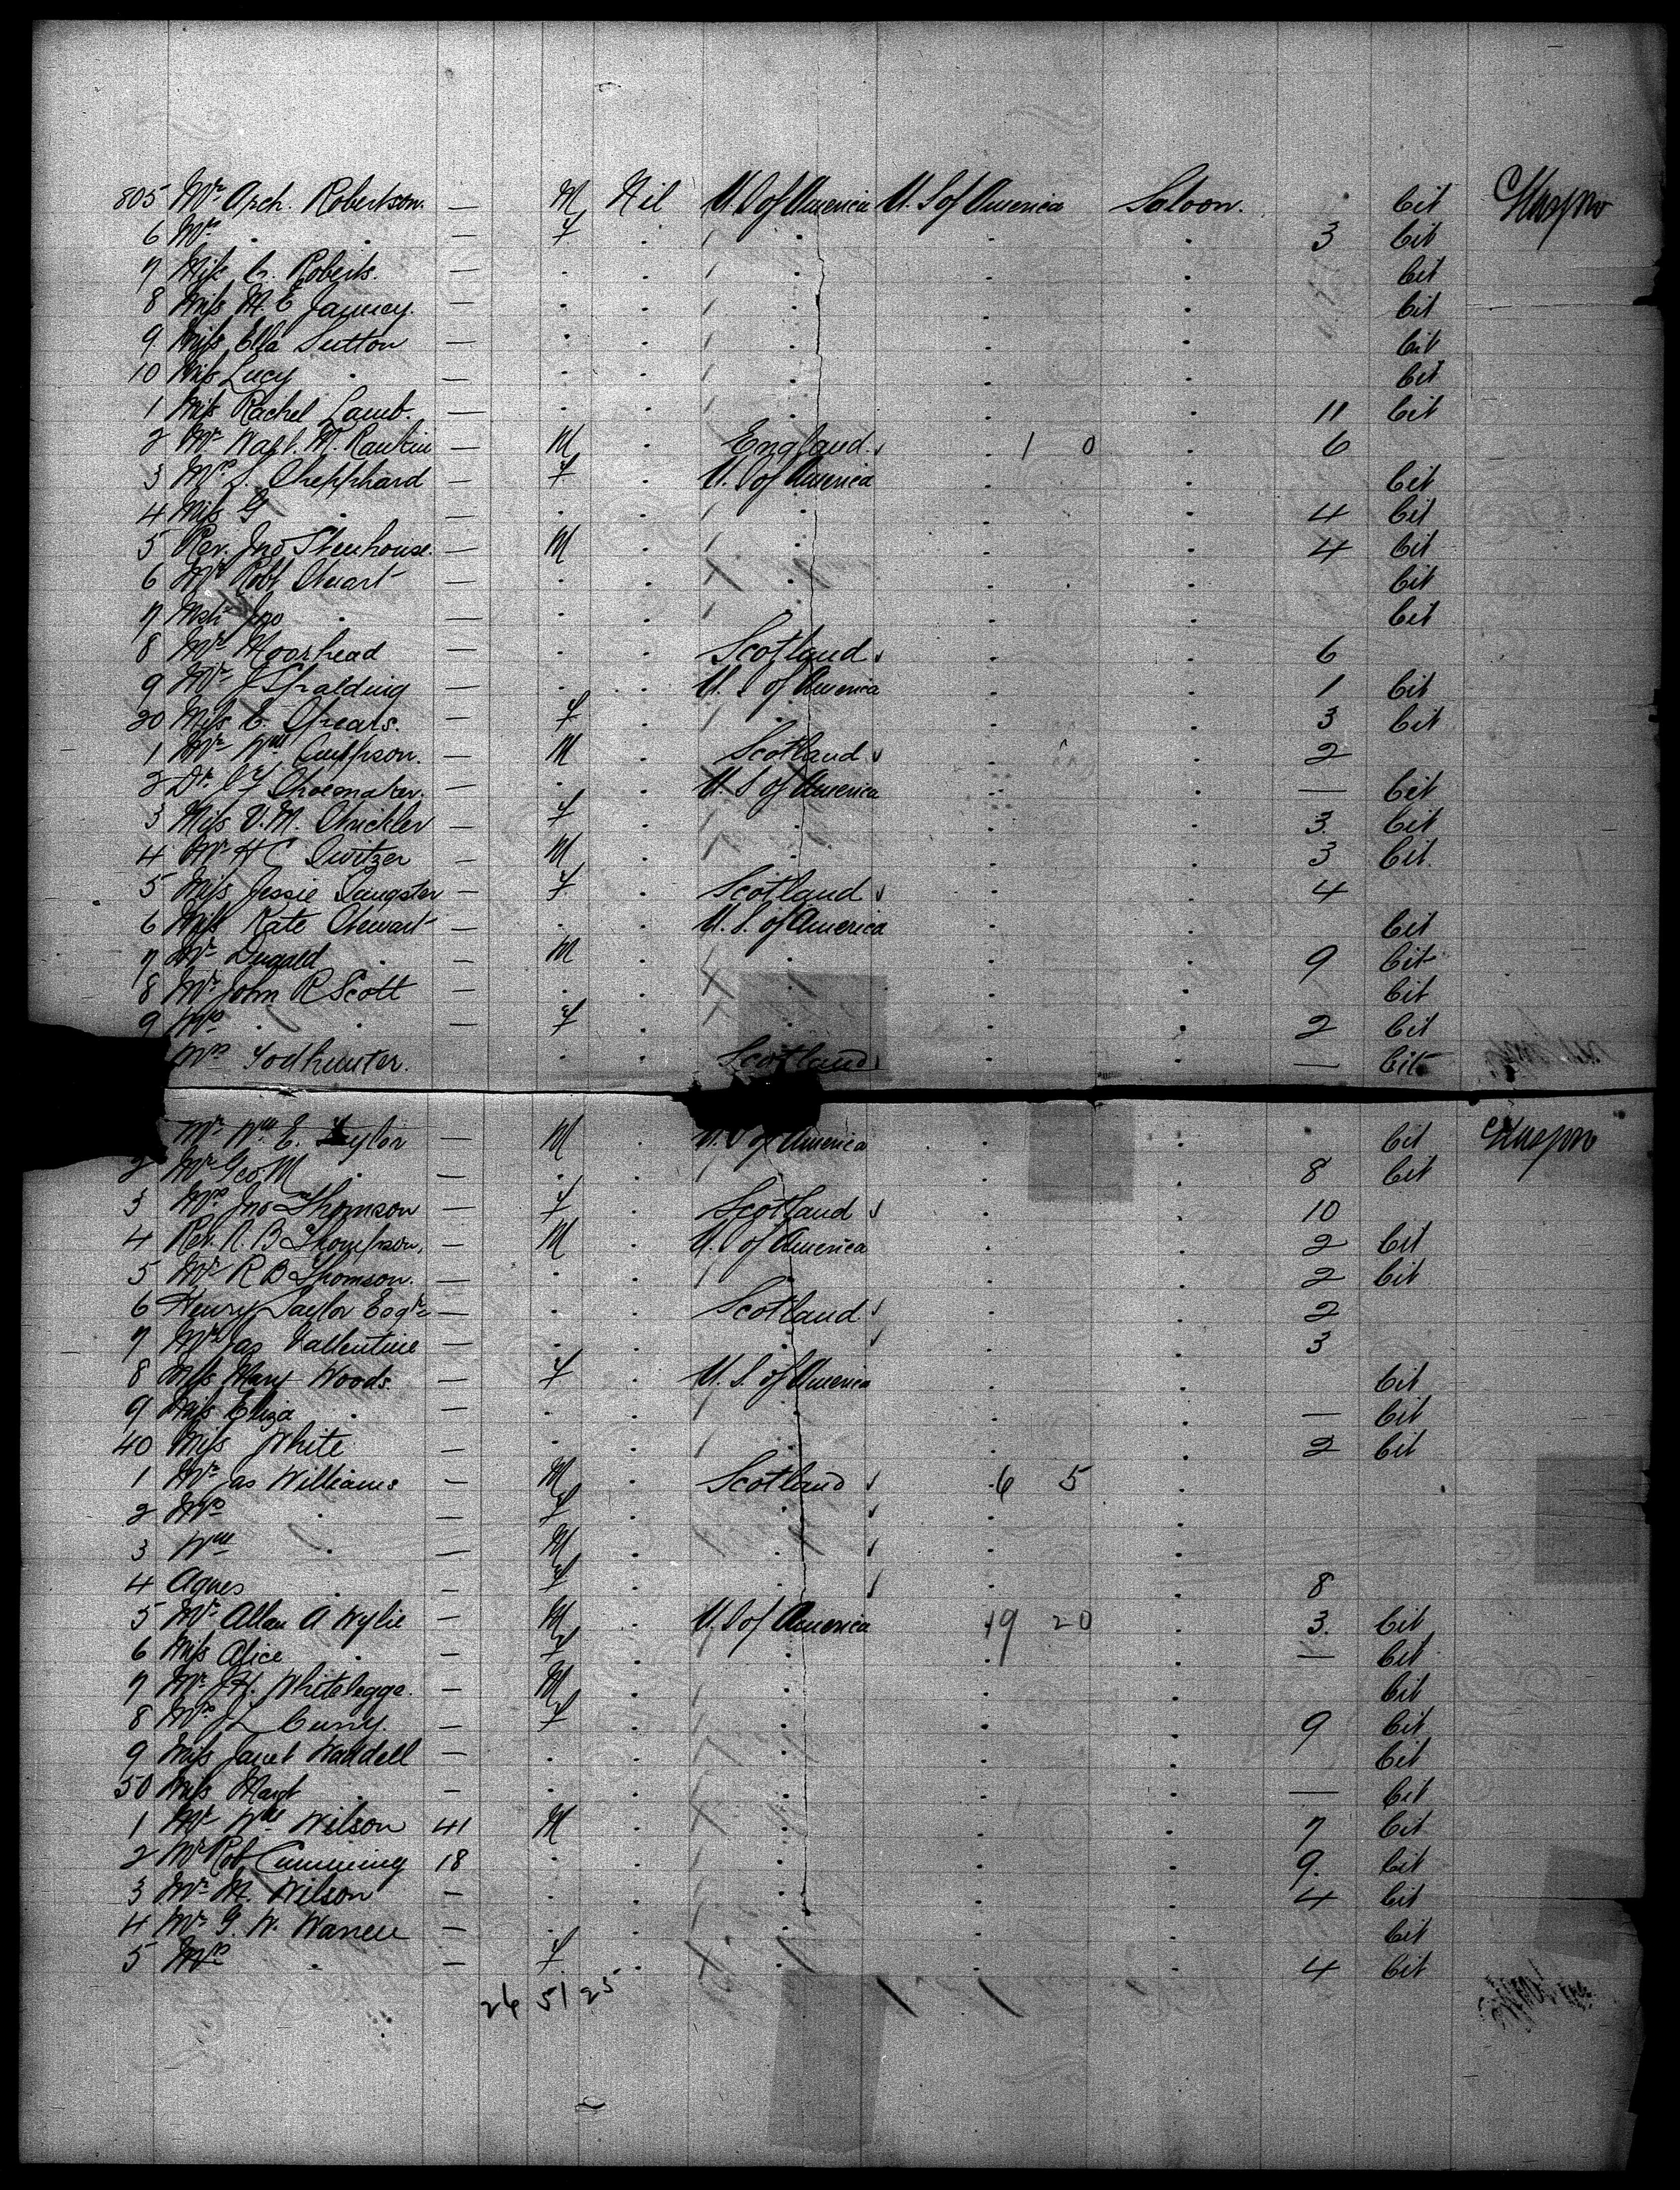 805 Mr Arch. Robertson. — M Nil U.S of America U.S of America Saloon. cit
6 Mrs . . — F . . . . 3 cit
7 Miss C. Roberts. — . . . . . cit
8 Miss M. E. Janney. — . . . . . cit
9 Miss Ella Sutton — . . . . . cit
10 Miss Lucy . — . . . . . cit
1 Miss Rachel Lamb. — . . . . . 11 cit
2 Mr M. Rankin — M . England. . 1 0 . 6
3 Mrs S. Shepphard — F . U.S of America . . cit
4 Miss G . — . . . . . 4 cit
5 Rev. Jno Stenhouse. — M . . . . 4 cit
6 Mr Robt Stuart — . . . . . cit
7 Mstr Jno . — . . . . . cit
8 Mr Moorhead — . . Scotland . . 6
9 Mr J Spalding — . . U.S of America . . 1 cit
20 Miss C. Spears. — F . . . . 3 cit
1 Mr Wm — M . Scotland . . 2
2 Dr. Shoemaker. — . . U S of America . . — cit
3 Miss V. M. Strickler — F . . . . 3. cit
4 Mr H C Switzer — M . . . . 3 cit
5 Miss Jessie Sangster — F . Scotland . . 4
6 Miss Kate Stewart — . . U.S. of America . . cit
7 Mr Dugald . — M . . . . 9 cit
8 Mr John R Scott — . . . . . cit
9 Mrs . . — F . . . . 2 cit
Mrs Todhunter. . . Scotland — cit
Mr Wm E. Taylor — M U.S of America . . cit
2 Mr Geo M . — . . . . . 8 cit
3 Mrs Jno Thomson — F . Scotland . . 10
4 Rev. R. B Thompson, — M . U.S of America . . 2 cit
5 Mr R B Thomson. — . . . . . 2 cit
6 Henry Taylor Esqre — . . Scotland . . 2
7 Mr Jas Vallentine — . . . . . 3
8 Miss Mary Woods. — F . U.S. of America . . cit
9 Miss Eliza . — . . . . . — cit
40 Miss White — . . . . . 2 cit
1 Mr Jas Williams — M . Scotland . 6 5 .
2 Mrs . — F . . . .
3 Wm . — M . . . .
4 Agnes . — F . . . . 8
5 Mr Allan A Wylie — M . U.S of America 19 20 . 3. cit
6 Miss Alice . — F . . . . — cit
7 Mr J. H. Whitelegge. — M . . . . cit
8 Mrs J L Curry. — F . . . . 9 cit
9 Miss Janet Waddell — . . . . . cit
50 Miss Margt . — . . . . . — cit
1 Mr Wm Wilson 41 M . . . . 7 cit
2 Mr Rob Cumming 18 . . . . . 9. cit
3 Mr M. Wilson — . . . . . 4 cit
4 Mr G. W. Warren — . . . . . cit
5 Mrs . — F . . . . 4 cit
26 51 25